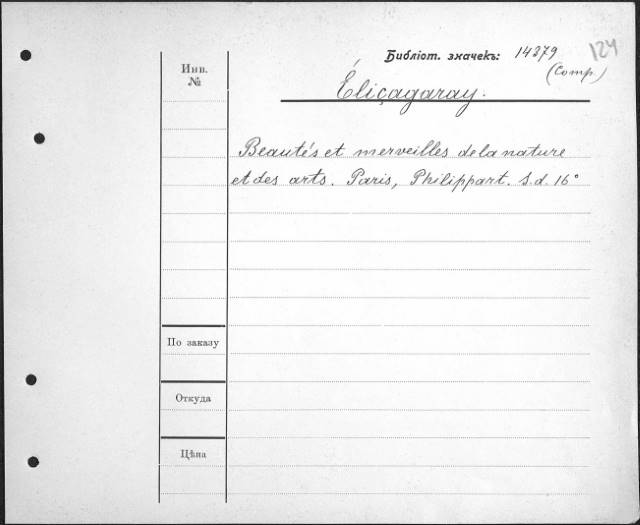 Библіот. значекъ: 14379 124
(Comp.)
Инв.
№
Éliçagaray.
Beautés et merveilles de la nature
et des arts. Paris, Philippart. S.d. 16°
По заказу
Откуда
Цѣна